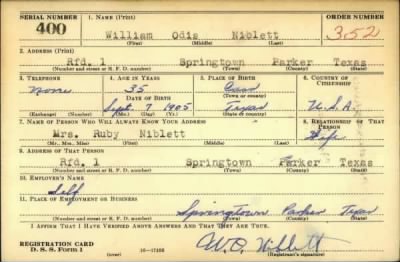 SERIAL NUMBER 1. NAME (Print) ORDER NUMBER
400 William Odis Niblett 352
(First) (Middle) (Last)
2. ADDRESS (Print)
Rfd. 1 Springtown Parker Texas
(Number and street or R. F. D. number) (Town) (County) (State)
3. TELEPHONE 4. AGE IN YEARS 5. PLACE OF BIRTH 6. COUNTRY OF CITIZENSHIP
None 35
DATE OF BIRTH (Town or county)
Sept. 7 1905 Texas U.S.A.
(Exchange) (Number) (Mo.) (Day) (Yr.) (State or country)
7. NAME OF PERSON WHO WILL ALWAYS KNOW YOUR ADDRESS 8. RELATIONSHIP OF THAT PERSON
Mrs. Ruby Niblett Wife
(Mr., Mrs., Miss) (First) (Middle) (Last)
9. ADDRESS OF THAT PERSON
Rfd. 1 Springtown Parker Texas
(Number and street or R. F. D. number) (Town) (County) (State)
10. EMPLOYER'S NAME
Self
11. PLACE OF EMPLOYMENT OR BUSINESS
Springtown Parker Texas
(Number and street or R. F. D. number) (Town) (County) (State)
I AFFIRM THAT I HAVE VERIFIED ABOVE ANSWERS AND THAT THEY ARE TRUE.
REGISTRATION CARD W.O. Niblett
D. S. S. Form 1 (over) (Registrant's signature)